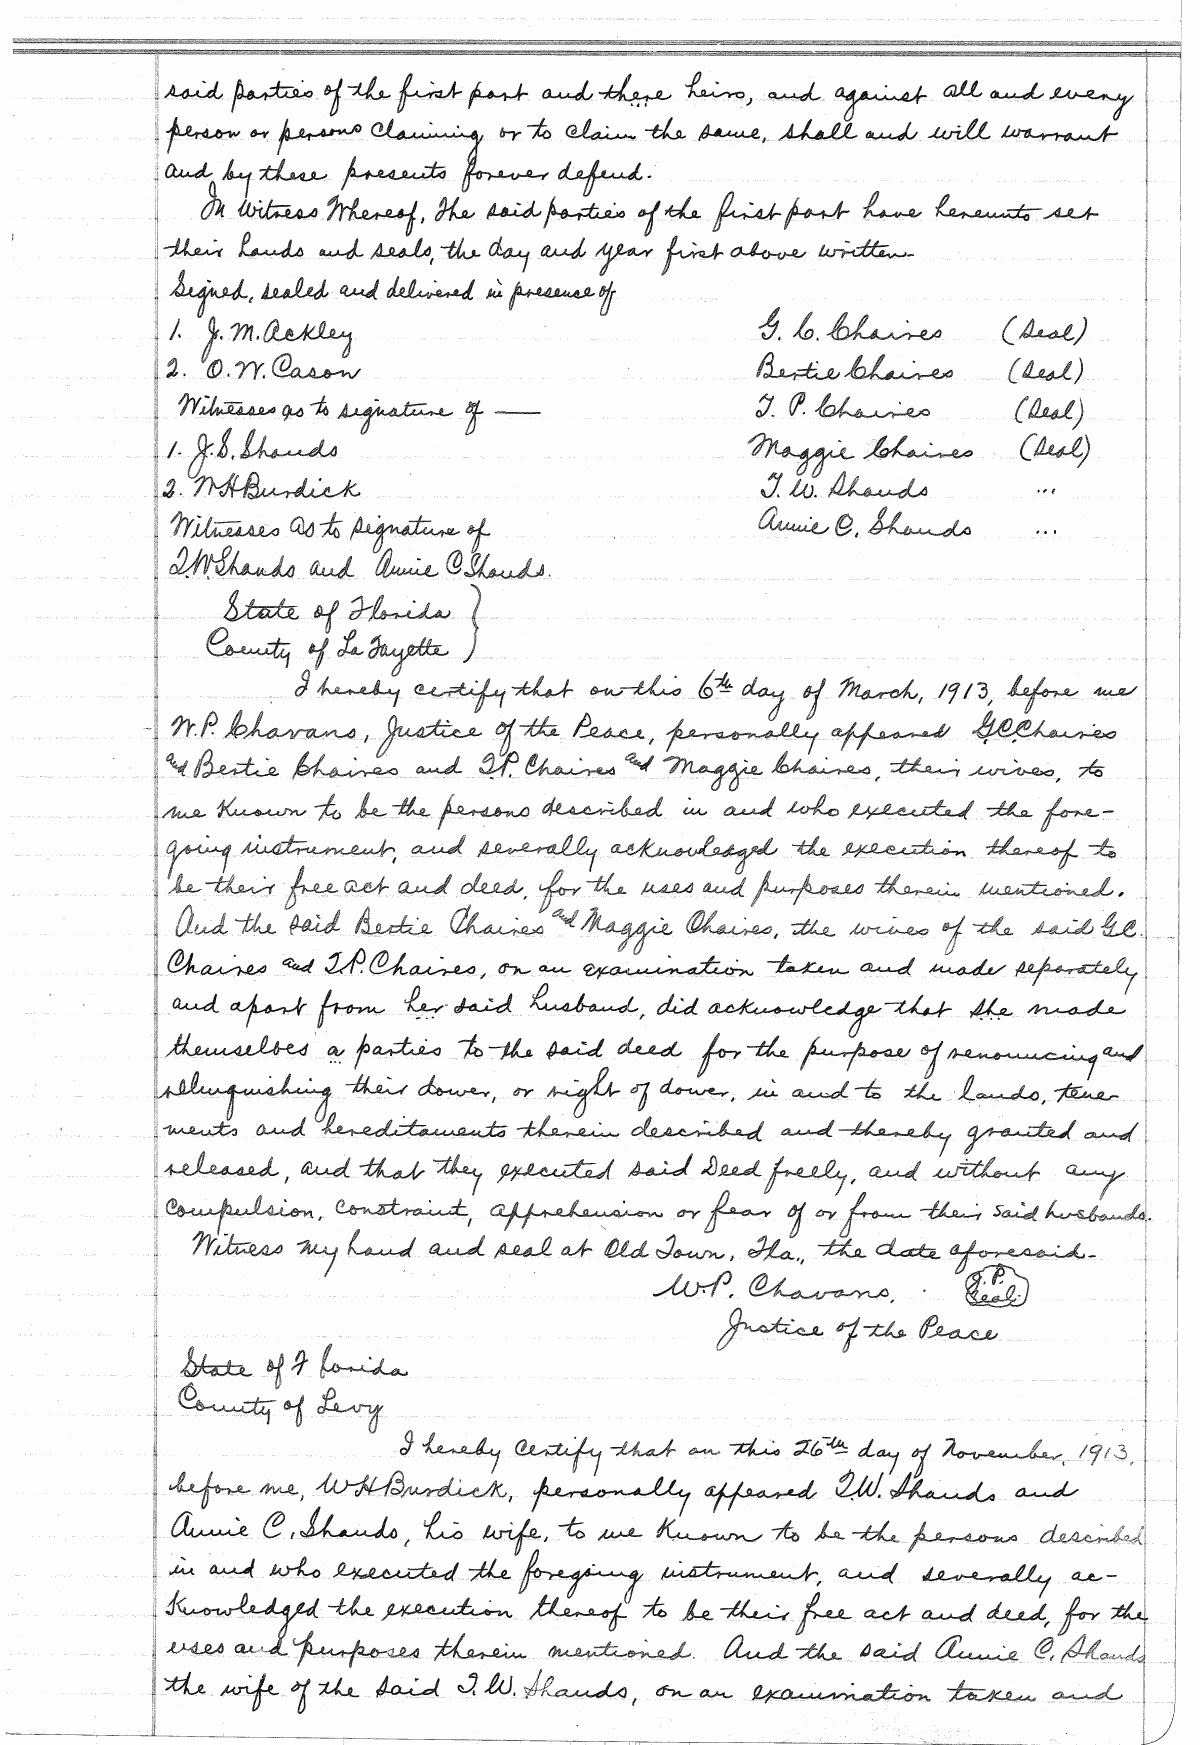 said parties of the first part and there heirs, and against all and every
person or persons claiming or to claim the same, shall and will warrant
and by these presents forever defend.
In Witness Whereof, The said parties of the first part have hereunto set
their hands and seals, the day and year first above written.
Signed, sealed and delivered in presence of
1. J. M. Ackley G. C. Chaires (Seal)
2. O. W. Cason Bertie Chaires (Seal)
Witnesses as to signature of — T. P. Chaires (Seal)
1. J. S. Shands Maggie Chaires (Seal)
2. W H Burdick T. W. Shands ...
Witnesses as to signature of Annie C. Shands ...
T. W. Shands and Annie C Shands.
State of Florida }
County of La Fayette }
I hereby certify that on this 6th day of March, 1913, before me
W. P. Chavans, Justice of the Peace, personally appeared G. C. Chaires
and Bertie Chaires and T. P. Chaires and Maggie Chaires, their wives, to
me known to be the persons described in and who executed the fore-
going instrument, and severally acknowledged the execution thereof to
be their free act and deed, for the uses and purposes therein mentioned.
And the said Bertie Chaires and Maggie Chaires, the wives of the said G. C.
Chaires and T. P. Chaires, on an examination taken and made separately
and apart from her said husband, did acknowledge that she made
themselves a parties to the said deed for the purpose of renouncing and
relinquishing their dower, or right of dower, in and to the lands, tene-
ments and hereditaments therein described and thereby granted and
released, and that they executed said Deed freely, and without any
compulsion, constraint, apprehension or fear of or from their said husbands.
Witness my hand and seal at Old Town, Fla., the date aforesaid-
W. P. Chavans, J. P. Seal
Justice of the Peace
State of Florida
County of Levy
I hereby certify that on this 26th day of November, 1913,
before me, W H Burdick, personally appeared T. W. Shands and
Annie C. Shands, his wife, to me known to be the persons described
in and who executed the foregoing instrument, and severally ac-
knowledged the execution thereof to be their free act and deed, for the
uses and purposes therein mentioned. And the said Annie C. Shands
the wife of the said T. W. Shands, on an examination taken and